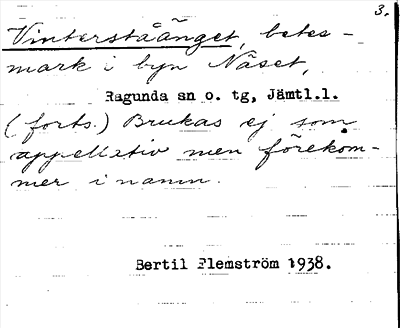 3.
Vinterstäänget, betes-
mark i byn Näset,
Ragunda sn o. tg, Jämtl.l.
(forts.) Brukas ej som
appellativ men förekom-
mer i namn.
Bertil Flemström 1938.